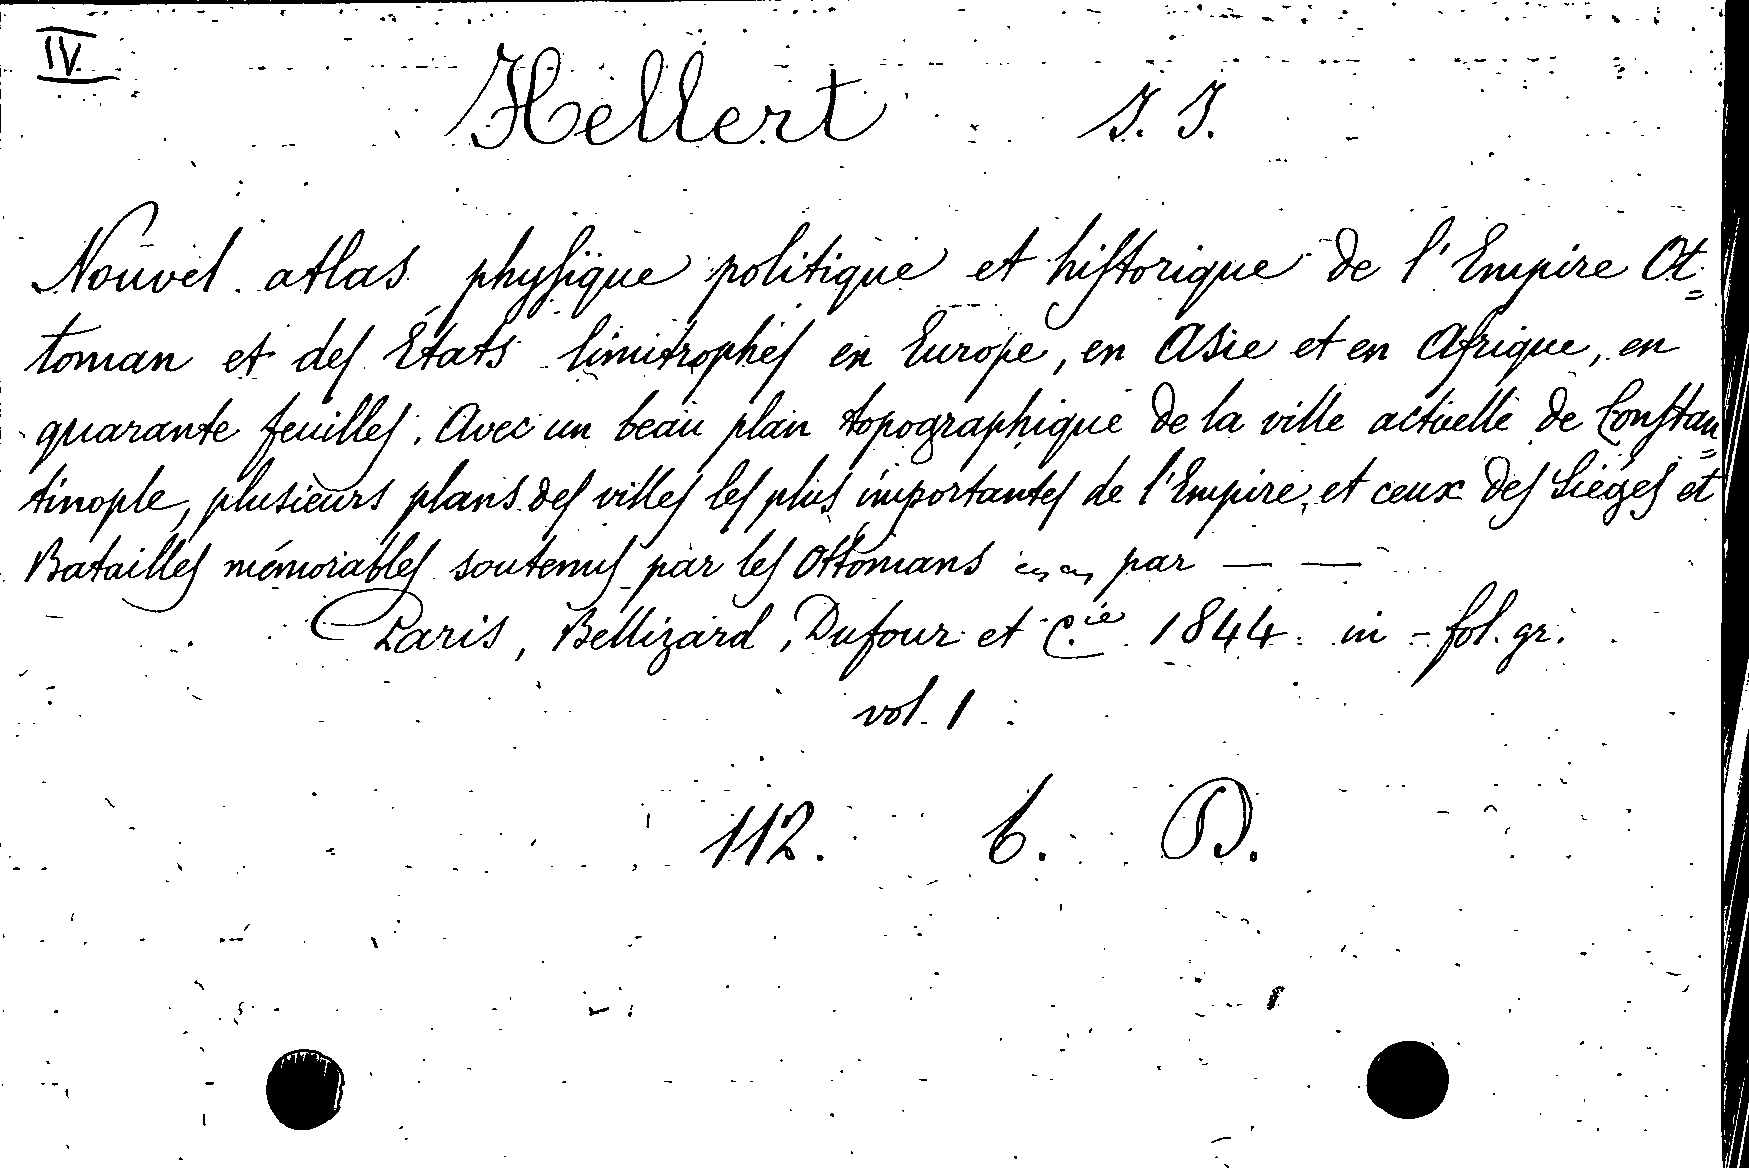 IV.
Hellert J. J.
Nouvel atlas physique politique et historique de l'Empire Ot=
toman et des États limitrophes en Europe, en Asie et en Afrique, en
quarante feuilles. Avec un beau plan topographique de la ville actuelle de Constan=
tinople, plusieurs plans des villes les plus importantes de l'Empire, et ceux des Siéges et
Batailles mémorables soutenus par les Ottomans par — —
Paris, Bellizard, Dufour et C.ie 1844. in-fol. gr.
vol. 1
112. 6. D.